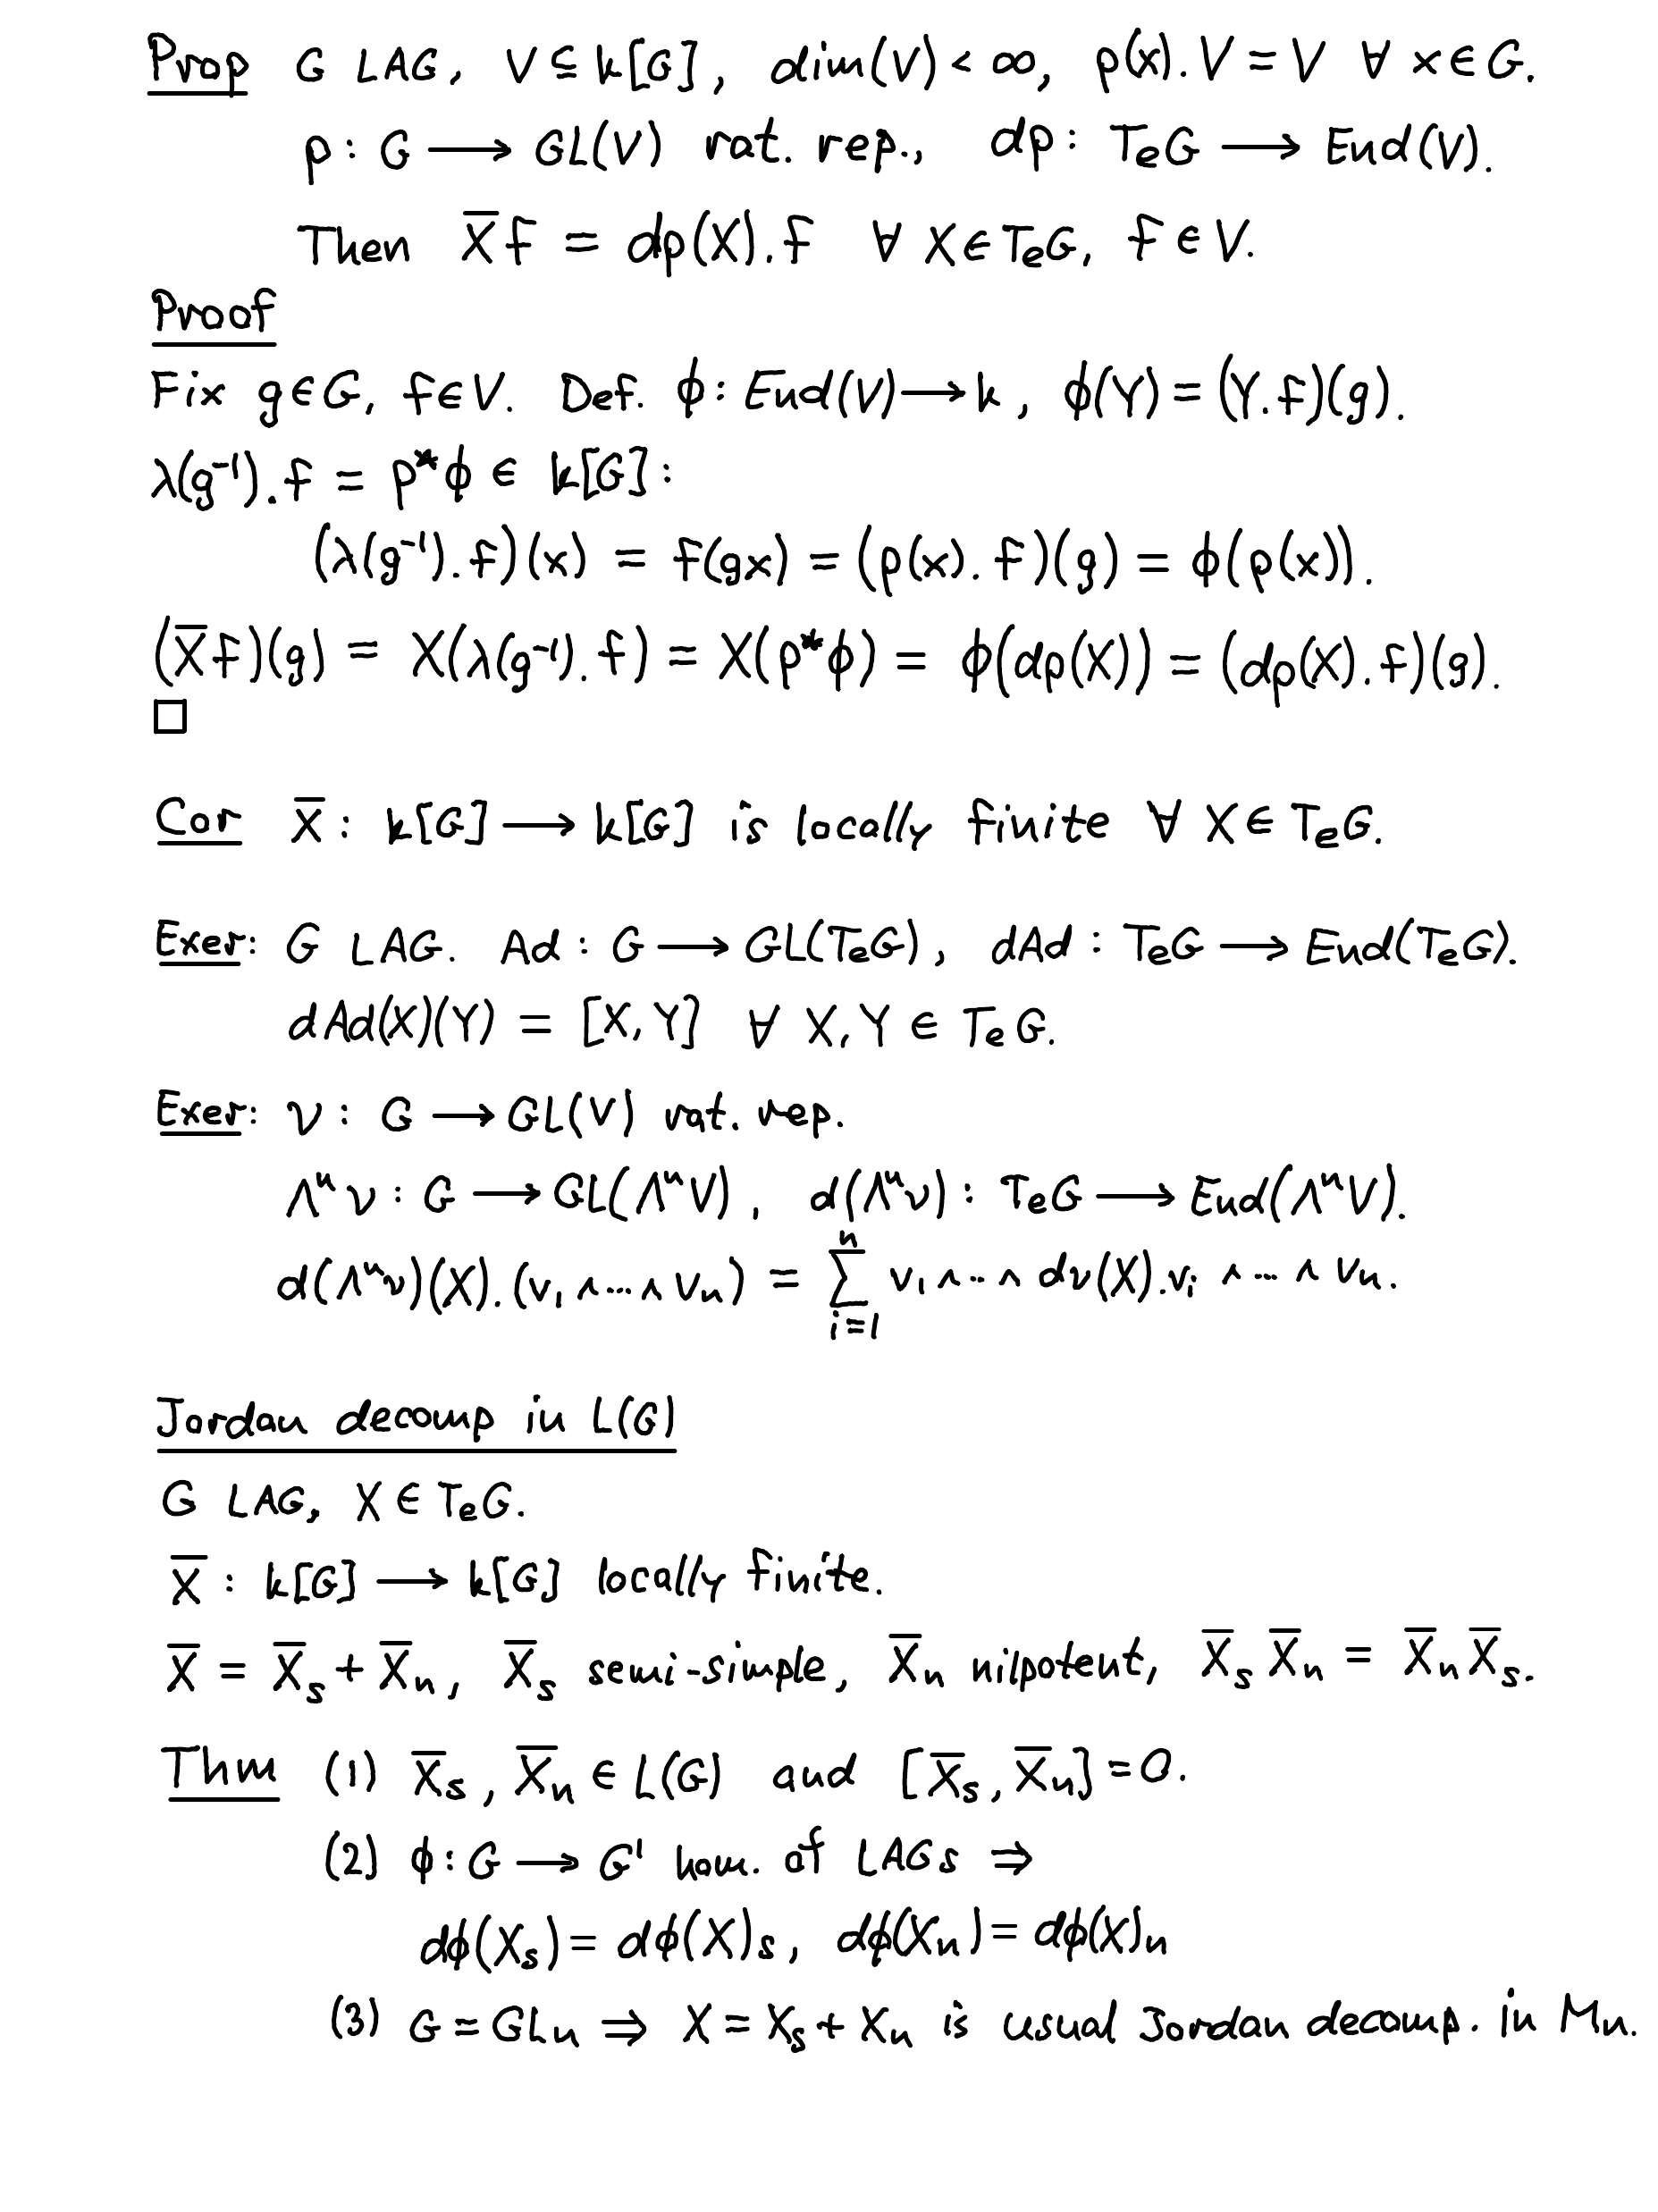 Prop G LAG, V ⊆ k[G], dim(V) < ∞, ρ(x).V = V ∀ x ∈ G.
ρ : G ⟶ GL(V) rat. rep., dρ : TeG ⟶ End(V).
Then X̅f = dρ(X).f ∀ X ∈ TeG, f ∈ V.
Proof
Fix g ∈ G, f ∈ V. Def. ϕ : End(V) ⟶ k, ϕ(Y) = (Y.f)(g).
λ(g⁻¹).f = ρ*ϕ ∈ k[G] :
(λ(g⁻¹).f)(x) = f(gx) = (ρ(x).f)(g) = ϕ(ρ(x)).
(X̅f)(g) = X(λ(g⁻¹).f) = X(ρ*ϕ) = ϕ(dρ(X)) = (dρ(X).f)(g).
□
Cor X̅ : k[G] ⟶ k[G] is locally finite ∀ X ∈ TeG.
Exer: G LAG. Ad : G ⟶ GL(TeG), dAd : TeG ⟶ End(TeG).
dAd(X)(Y) = [X, Y] ∀ X, Y ∈ TeG.
Exer: ν : G ⟶ GL(V) rat. rep.
Λⁿν : G ⟶ GL(ΛⁿV), d(Λⁿν) : TeG ⟶ End(ΛⁿV).
d(Λⁿν)(X).(v₁ ∧ ... ∧ vₙ) = ∑_{i=1}^{n} v₁ ∧ ... ∧ dν(X).vᵢ ∧ ... ∧ vₙ.
Jordan decomp in L(G)
G LAG, X ∈ TeG.
X̅ : k[G] ⟶ k[G] locally finite.
X̅ = X̅ₛ + X̅ₙ, X̅ₛ semi-simple, X̅ₙ nilpotent, X̅ₛ X̅ₙ = X̅ₙ X̅ₛ.
Thm (1) X̅ₛ, X̅ₙ ∈ L(G) and [X̅ₛ, X̅ₙ] = 0.
(2) ϕ : G ⟶ G' hom. of LAGs ⇒
dϕ(Xₛ) = dϕ(X)ₛ, dϕ(Xₙ) = dϕ(X)ₙ
(3) G = GLₙ ⇒ X = Xₛ + Xₙ is usual Jordan decomp. in Mₙ.